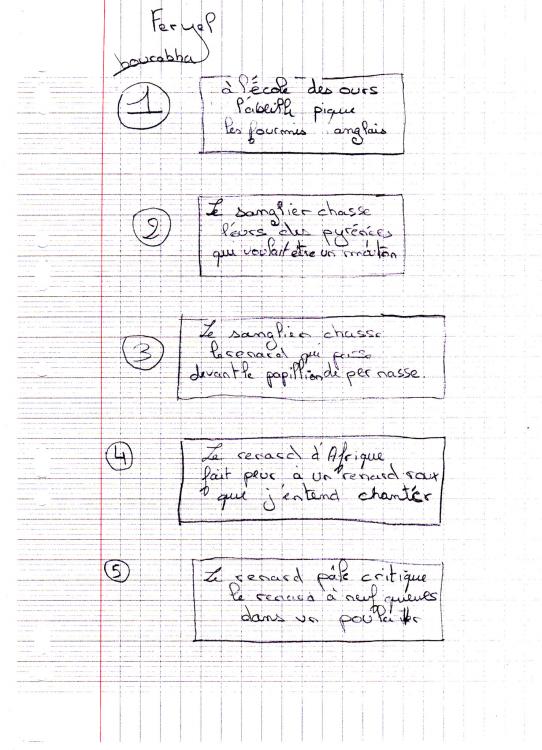 Feryel
bourabha
1
à l'école des ours
l'abeille pique
les fourmis anglais
2
Le sanglier chasse
l'ours des pyrénées
qui voulait être un mouton
3
Le sanglier chasse
le renard qui passe
devant le papillion de per nasse.
4
Le renard d'Afrique
fait peur à un renard roux
que j'entend chanter
5
Le renard pâle critique
le renard à neuf queues
dans un